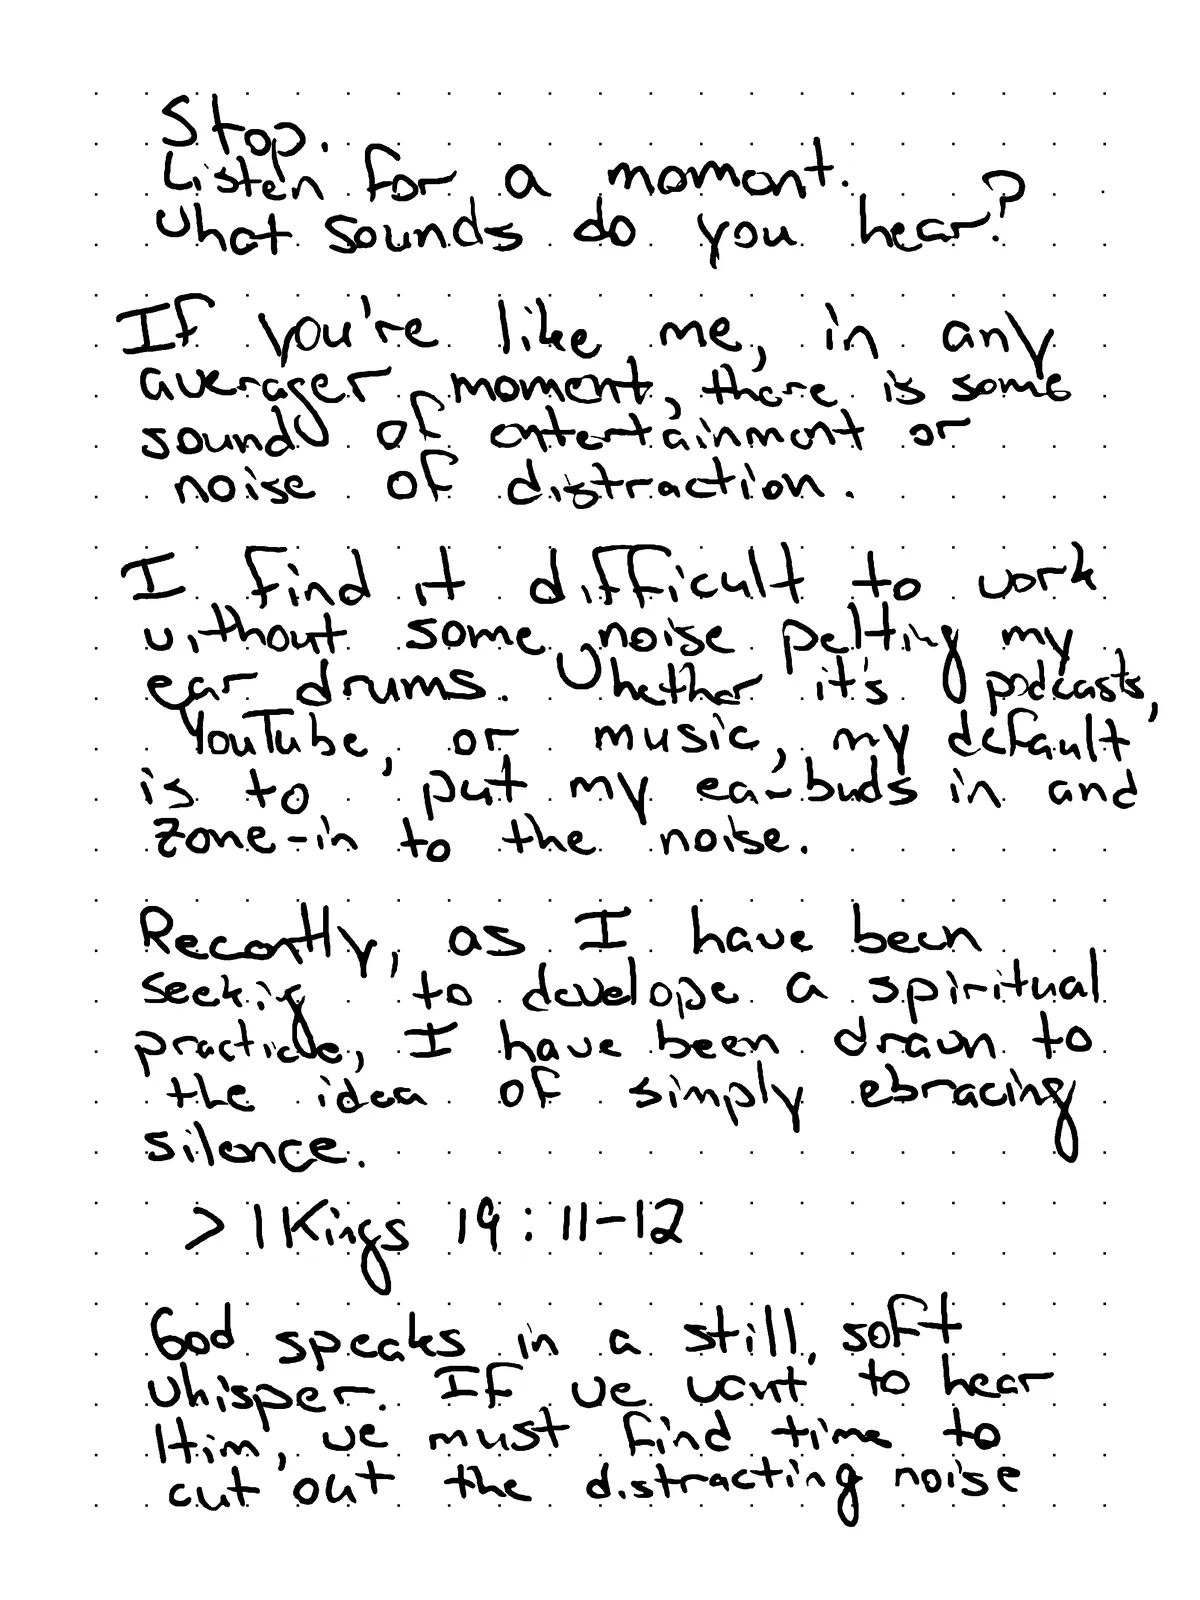 Stop.
Listen for a moment.
What sounds do you hear?
If you're like me, in any
averager moment, there is some
sound of entertainment or
noise of distraction.
I find it difficult to work
without some noise pelting my
ear drums. Whether it's podcasts,
YouTube, or music, my default
is to put my earbuds in and
zone-in to the noise.
Recently, as I have been
seekig to develope a spiritual
practice, I have been drawn to
the idea of simply ebracing
silence.
> 1 Kings 19:11-12
God speaks in a still, soft
whisper. If we want to hear
Him, we must find time to
cut out the distracting noise